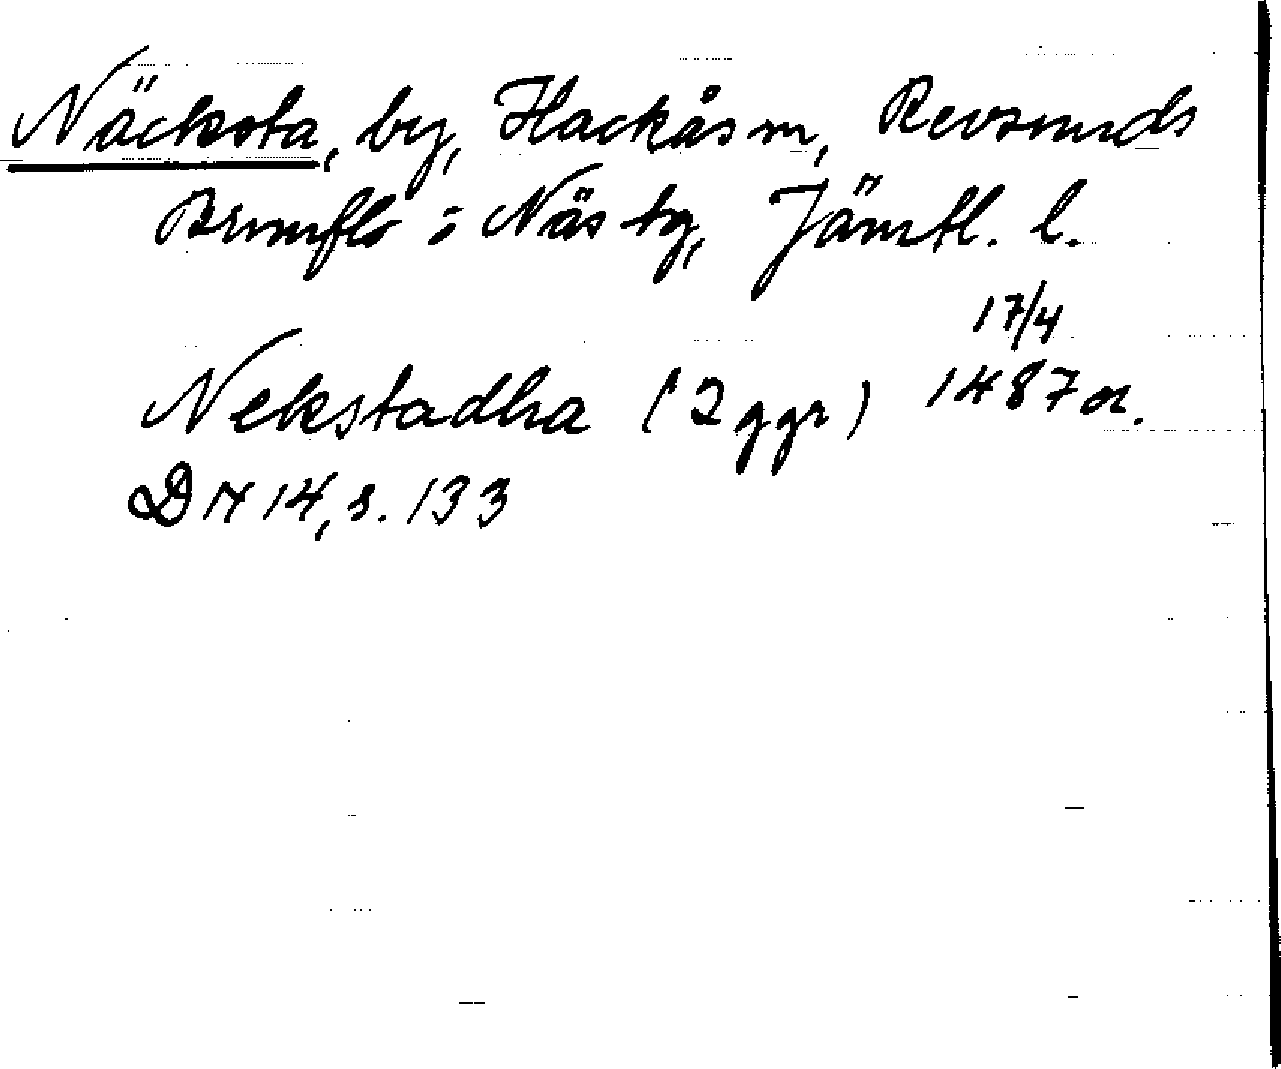 Näcksta, by, Hackås sn, Revsunds
Brunflo o Näs tg, Jämtl. l.
17/4
Nekstadha (2 ggr) 1487 or.
DN 14, s. 133